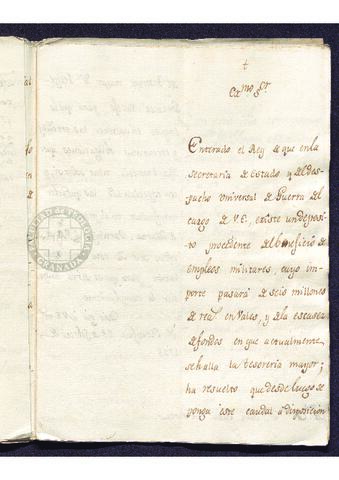 †
Exmo. Sor.
Enterado el Rey de que en la
secretaria de Estado y del des-
pacho Universal de Guerra del
cargo de V.E. existe un deposi-
to procedente del beneficio de
empleos militares, cuyo im-
porte pasará de seis millones
de real.s en Vales, y de la escasez
de fondos en que actualmente
se halla la tesoreria mayor;
ha resuelto que desde luego se
ponga este caudal a disposicion
GRANADA